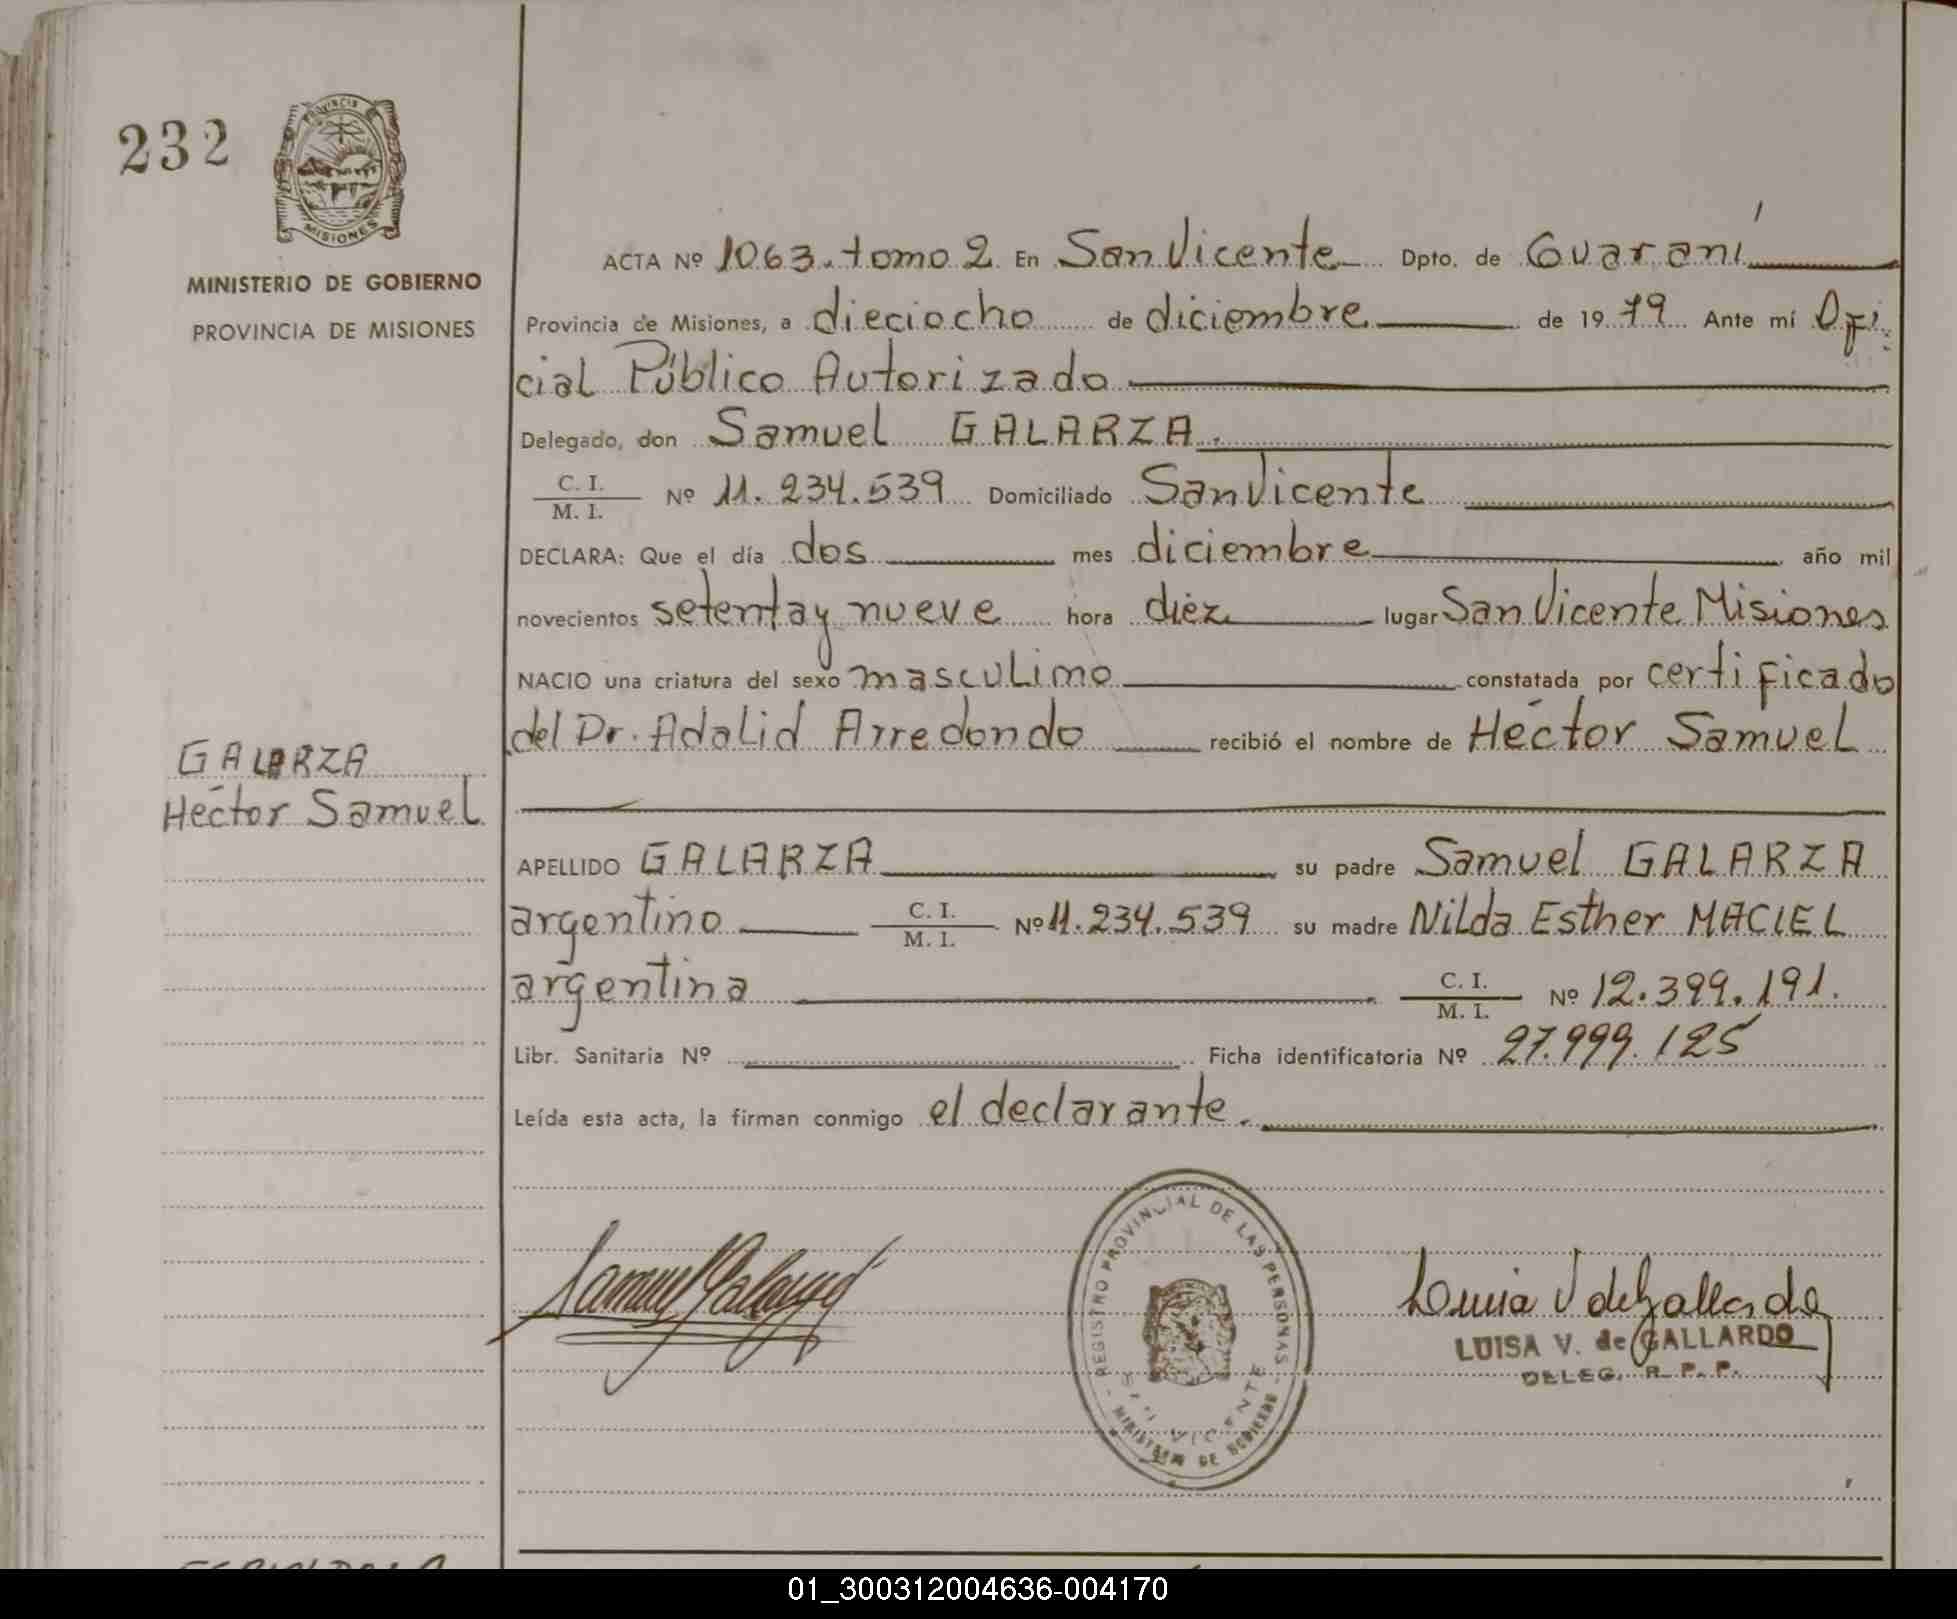 232
PROVINCIA
MISIONES
MINISTERIO DE GOBIERNO
PROVINCIA DE MISIONES
ACTA Nº 1063. tomo 2 En San Vicente Dpto. de Guaraní
Provincia de Misiones, a dieciocho de diciembre de 1979 Ante mí Ofi
cial Público Autorizado
Delegado, don Samuel GALARZA.
C. I.
M. I. Nº 11.234.539 Domiciliado San Vicente
DECLARA: Que el día dos mes diciembre año mil
novecientos setenta y nueve hora diez lugar San Vicente Misiones
NACIO una criatura del sexo masculino constatada por certificado
del Dr. Adalid Arredondo recibió el nombre de Héctor Samuel
GALARZA
Héctor Samuel
APELLIDO GALARZA su padre Samuel GALARZA
argentino C. I. M. I. Nº 11.234.539 su madre Nilda Esther MACIEL
argentina C. I. M. I. Nº 12.399.191.
Libr. Sanitaria Nº Ficha identificatoria Nº 27.999.125
Leída esta acta, la firman conmigo el declarante.
Samuel Galarza
REGISTRO PROVINCIAL DE LAS PERSONAS
SAN VICENTE
MINISTERIO DE GOBIERNO
Luisa V de Gallardo
LUISA V. de GALLARDO
DELEG. R. P. P.
01_300312004636-004170